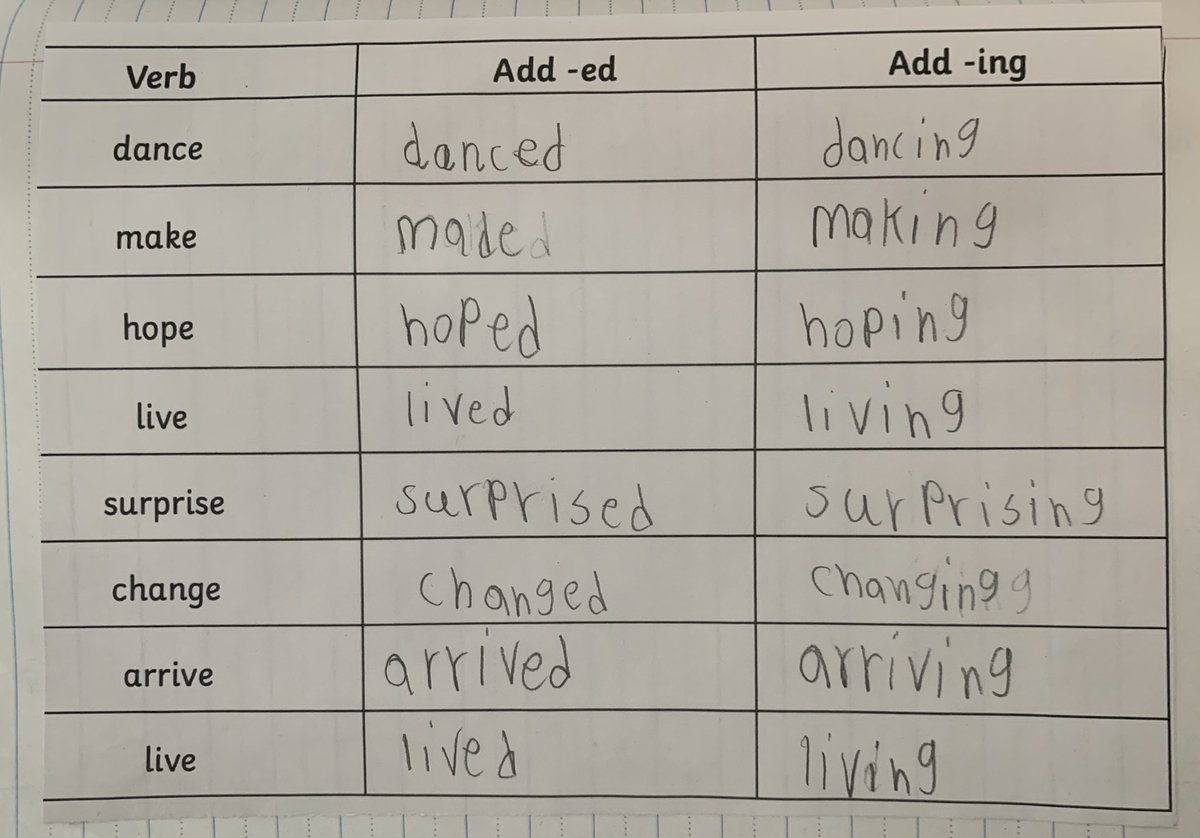 Verb Add -ed Add -ing
dance danced dancing
make made making
hope hoped hoping
live lived living
surprise surprised surprising
change changed changing
arrive arrived arriving
live lived living